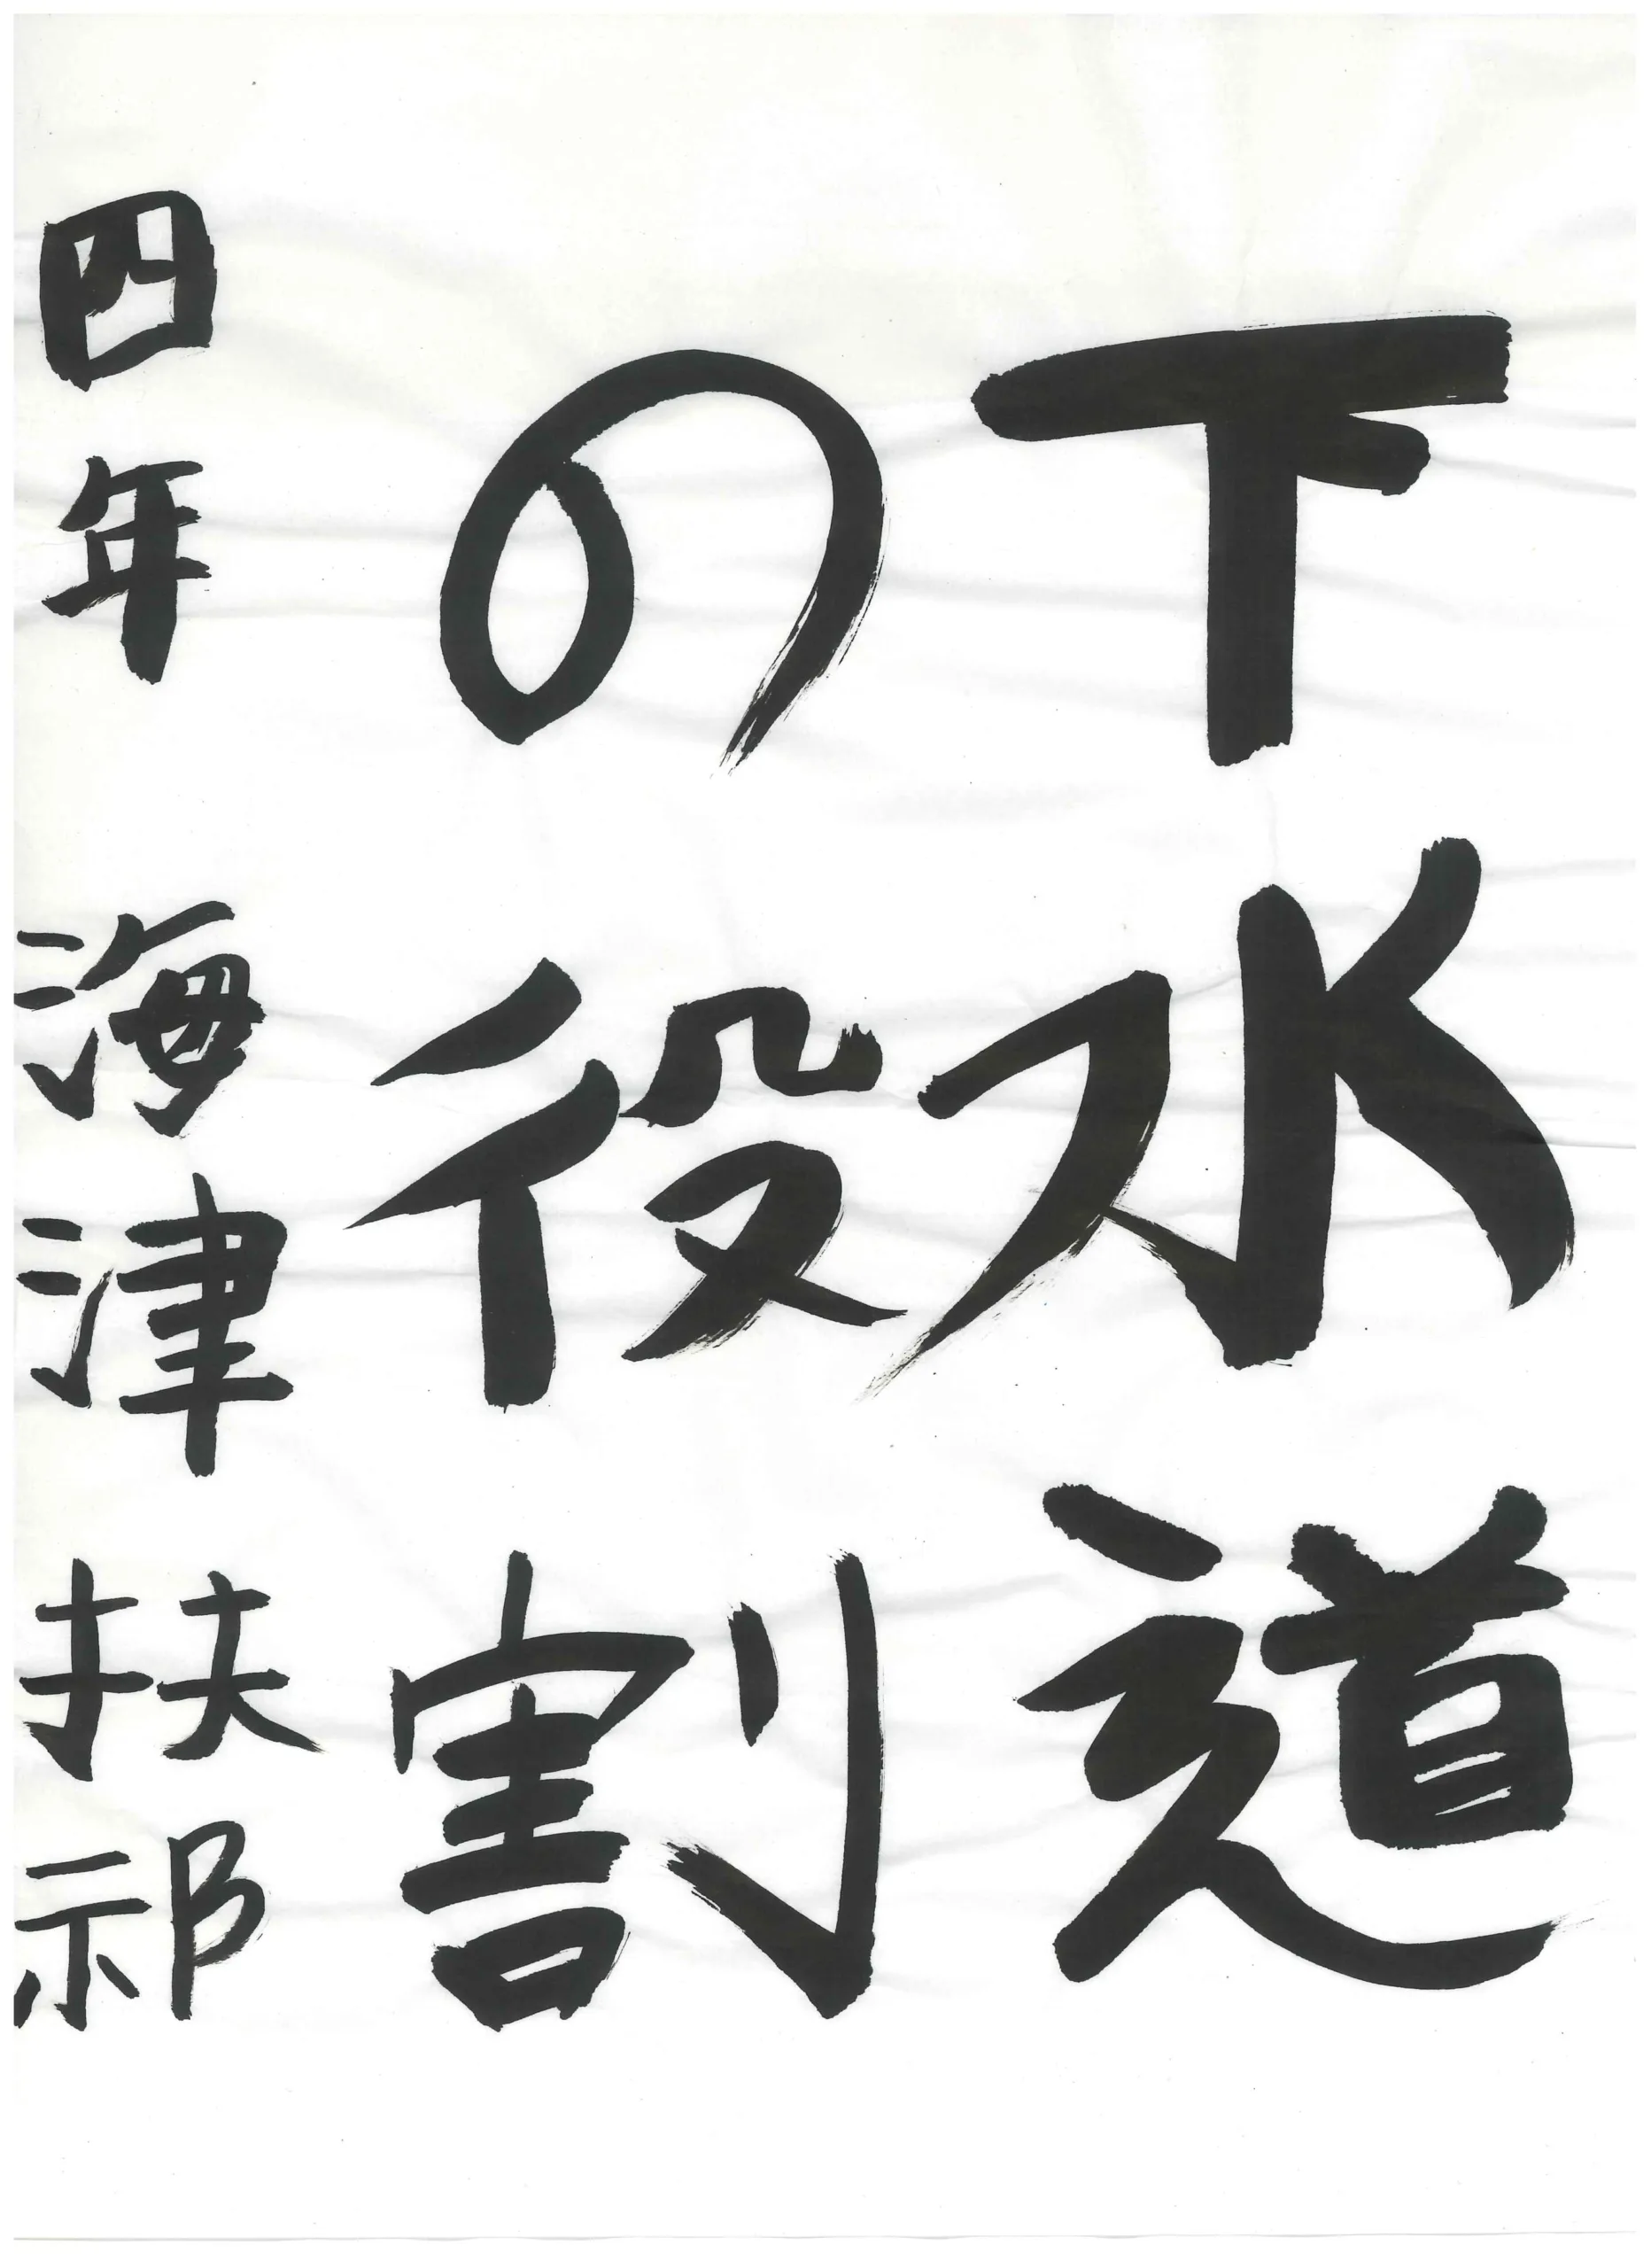 下水道
の役割
四年 海津扶祁